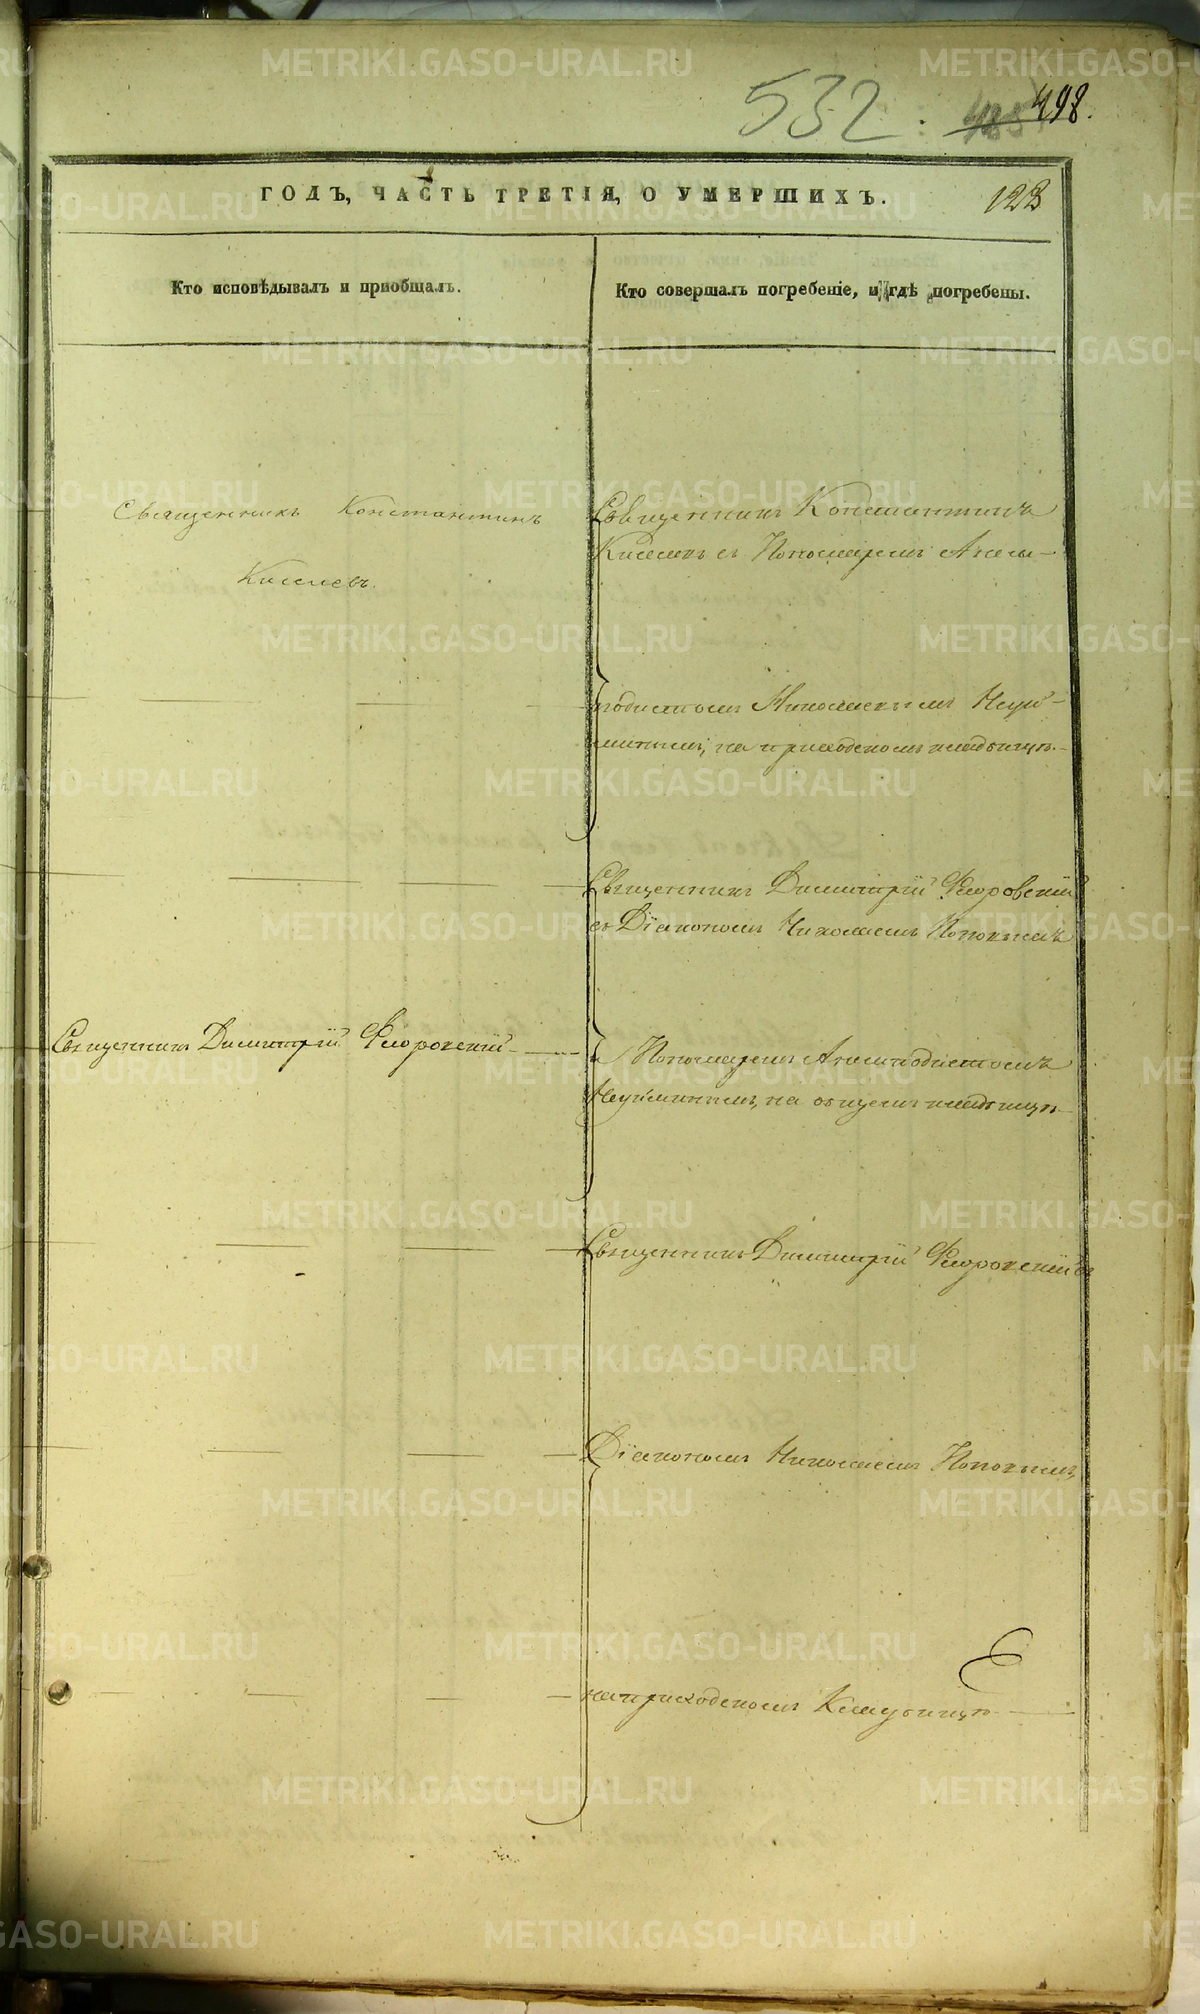 532. 485 498.
ГОДЪ, ЧАСТЬ ТРЕТІЯ, О УМЕРШИХЪ. 123
Кто исповѣдывалъ и пріобщалъ.
Кто совершалъ погребеніе, и гдѣ погребены.
Священникъ Константинъ
Киселевъ.
Священникъ Константинъ
Киселевъ съ Пономаремъ Анем-
подистомъ Николаевымъ Неуй-
минымъ, на приходскомъ кладбищѣ.
Священникъ Димитрій Флоровскій
съ Діакономъ Николаемъ Поповымъ
Священникъ Димитрій Флоровскій
и Пономаремъ Анемподистомъ
Неуйминымъ, на общемъ кладбищѣ
Священникъ Димитрій Флоровскій съ
Діакономъ Николаемъ Поповымъ,
на приходскомъ Кладбищѣ
METRIKI.GASO-URAL.RU